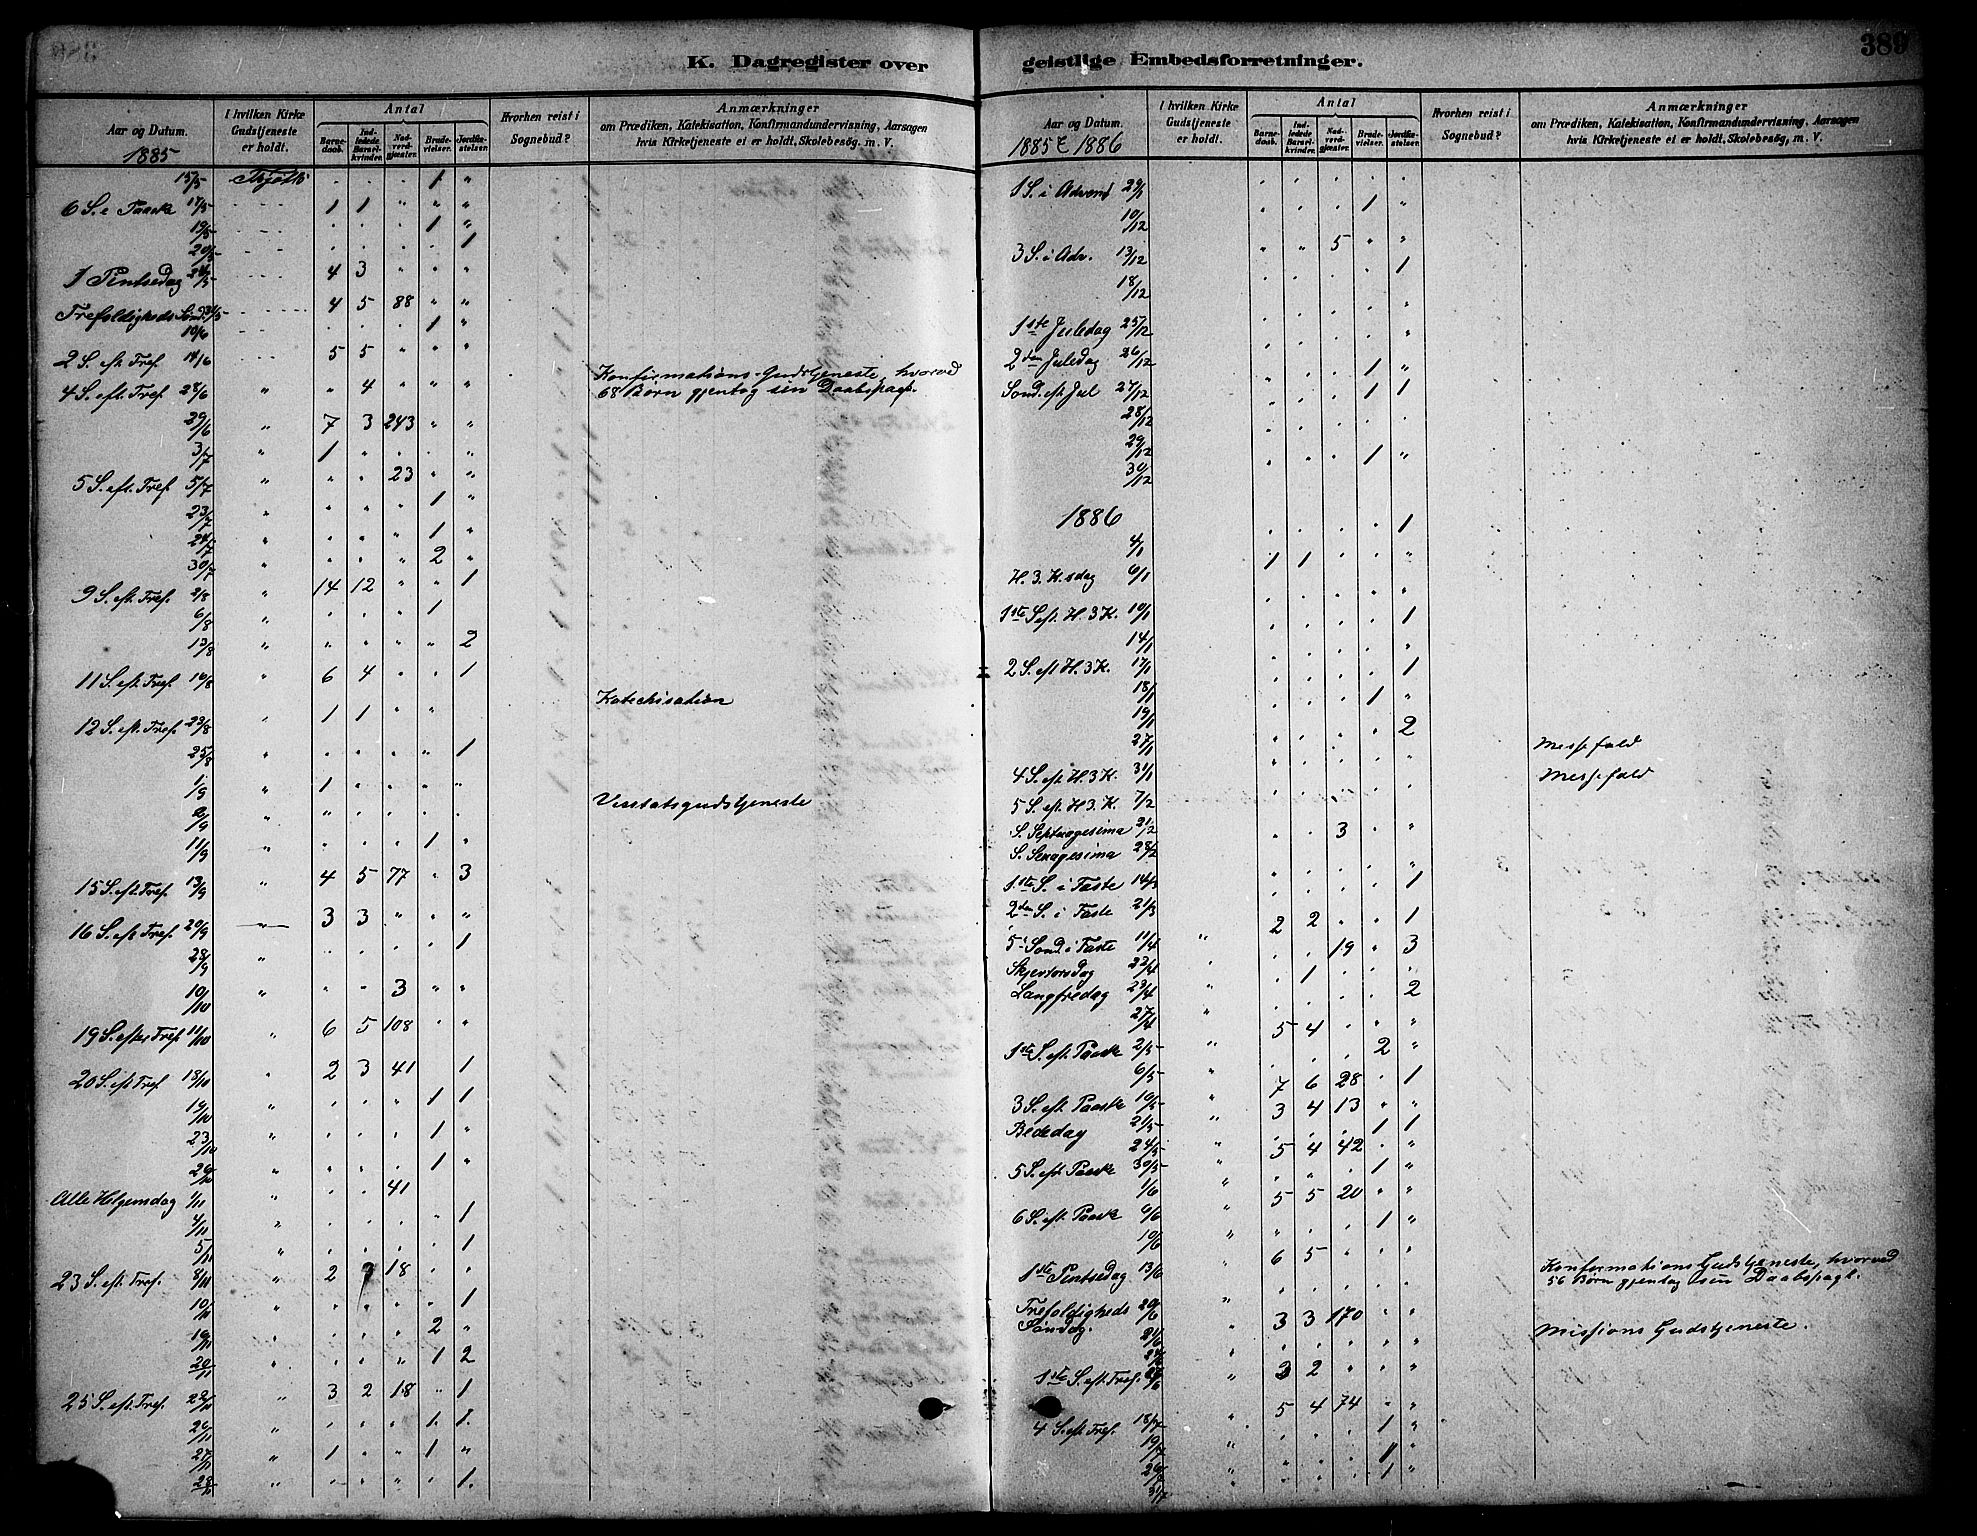 389
K. Dagregister over geistlige Embedsforretninger.
Aar og Datum.
1885
I hvilken Kirke Gudstjeneste er holdt.
Antal
Barnedaab.
Indledede Barselkvinder.
Nadverdgjæster.
Brudevielser.
Jordfæstelser.
Hvorhen reist i Sognebud?
Anmærkninger
om Prædiken, Katekisation, Konfirmandundervisning, Aarsagen
hvis Kirketjeneste ei er holdt, Skolebesøg, m. V.
15/5 " " " 1 "
6 S. e Paaske 17/5 1 1 " " "
19/5 " " " 1 "
20/5 " " " " 1
1 Pintsedag 24/5 4 3 " " "
Trefoldigheds Sønd. 31/5 4 5 88 " "
10/6 " " " 1 "
2 S. eft. Tref. 14/6 5 5 " " "
4 S. eft. Tref. 28/6 " " 4 " " " Konfirmations-Gudstjeneste, hvorved
68 Børn gjentog sin Daabspagt.
29/6 " 7 3 243 " "
3/7 " 1 " " " "
5 S. eft. Tref. 5/7 " " " 23 " "
23/7 " " " " 1 "
24/7 " " " " 1 "
30/7 " " " " 2 "
9 S. eft. Tref. 2/8 " 14 12 " " 1
6/8 " " " " 1
13/8 " " " " " 2
11 S. eft. Tref. 16/8 " 6 4 " " 1
12 S. eft. Tref. 23/8 " 1 1 " " Katechisation
25/8 " " " " " 1
1/9 " 1 " " " "
2/9 " " " " " Visitatsgudstjeneste
11/9 " " " " 1 "
15 S. eft. Tref. 13/9 " 4 5 77 " 3
16 S. eft Tref. 20/9 " 3 3 " " "
28/9 " " " " " 1
10/10 " " " 3 " "
19 S. efter Tref. 11/10 " 6 5 108 " "
20 S. eft Tref. 18/10 " 2 3 41 1
19/10 " " " " 1 1
23/10 " " " " 1 "
29/10 " " " " 1 "
Alle Helgensdag 1/11 " " " 41
4/11 " " " " " 1
5/11 " " " " " 1
23 S. eft. Tref. 8/11 " 2 18 " "
10/11 " " " " " 1
19/11 " " " " 2 "
20/11 " " " " 1 2
25 S. eft. Tref. 22/11 " 3 2 18 " 1
26/11 " " " " 1. 1.
27/11 " 1 " " 1 "
28/11 " " " " " 1.
Aar og Datum.
1885 & 1886
I hvilken Kirke Gudstjeneste er holdt.
Antal
Barnedaab.
Indledede Barselkvinder.
Nadverdgjæster.
Brudevielser.
Jordfæstelser.
Hvorhen reist i Sognebud?
Anmærkninger
om Prædiken, Katekisation, Konfirmandundervisning, Aarsagen
hvis Kirketjeneste ei er holdt, Skolebesøg, m. V.
1 S. i Advend 29/11 " " " " "
10/12 " " " 1 "
3 S. i Adv. 13/12 " " 5 " "
18/12 " " " " 1
1ste Juledag 25/12 " " " " "
2den Juledag 26/12 " " " " "
Sønd. eft Jul 27/12 " " " 1 "
28/12 " " " 1 1
29/12 " " " " "
30/12 " " " 1 "
1886
4/1 " " " " 1
H. 3. K.sdag 6/1 1 1 " " "
1ste S. eft. H. 3 K. 10/1 " " " " "
14/1 " " " " 1
2 S. eft H. 3 K. 17/1 " " " " "
18/1 " " " " 1
19/1 " " " 1 "
27/1 " " " " 2
4 S. eft. H. 3 K. 31/1 " " " " " Messefald
5 S. eft. H 3. K. 7/2 " " " " Messefald
S. Septuagesima 21/2 " " 3 " "
S. Sexagesima 28/2 " " " " "
1ste S. i Faste 14/3 " " " " 1
2den S. i Faste 21/3 2 2 " " 1
5. Sønd i Faste 11/4 " " " 19 " 3
Skjertorsdag 22/4 " " 1 " " "
Langfredag 23/4 " " " " " 2
27/4 " 5 4 " " "
1ste S. eft. Paaske 2/5 " " " " 2 "
6/5 " 7 6 28 " 1
3 S. eft. Paaske 10/5 " 3 4 13 " "
Bededag 21/5 " " " " 1 1
24/5 " 5 4 42 " "
5 S. eft Paaske 30/5 " " " " 1 "
1/6 " 5 5 20 " "
6 S. eft. Paaske 6/6 " " " " 1 "
10/6 " 6 5 " " "
1ste Pintsedag 13/6 " " " " " Konfirmations Gudstjeneste, hvorved
56 Børn gjentog sin Daabspagt.
Trefoldigheds 20/6 " 3 3 170 " "
Søndag. 21/6 " " " " " Missions Gudstjeneste.
1ste S. eft. Tref. 27/6 " 3 2 " " "
4 S. eft. Tref. 18/7 " 5 4 74 " "
19/7 " " " " 1 "
" " " " 1 "
" " " " 1 "